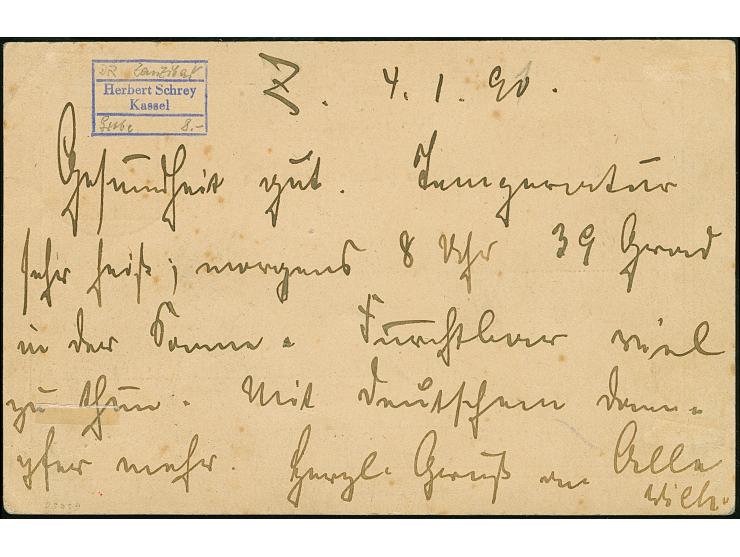 Z. 4. 1. 90.
DR Zanzibar
Herbert Schrey
Kassel
8.-
Gesundheit gut. Temperatur
sehr heiß; morgens 8 Uhr 39 Grad
in der Sonne. Furchtbar viel
zu thun. Mit deutschem Dam-
pfer mehr. Herzl. Gruß an Alle
Wilh.